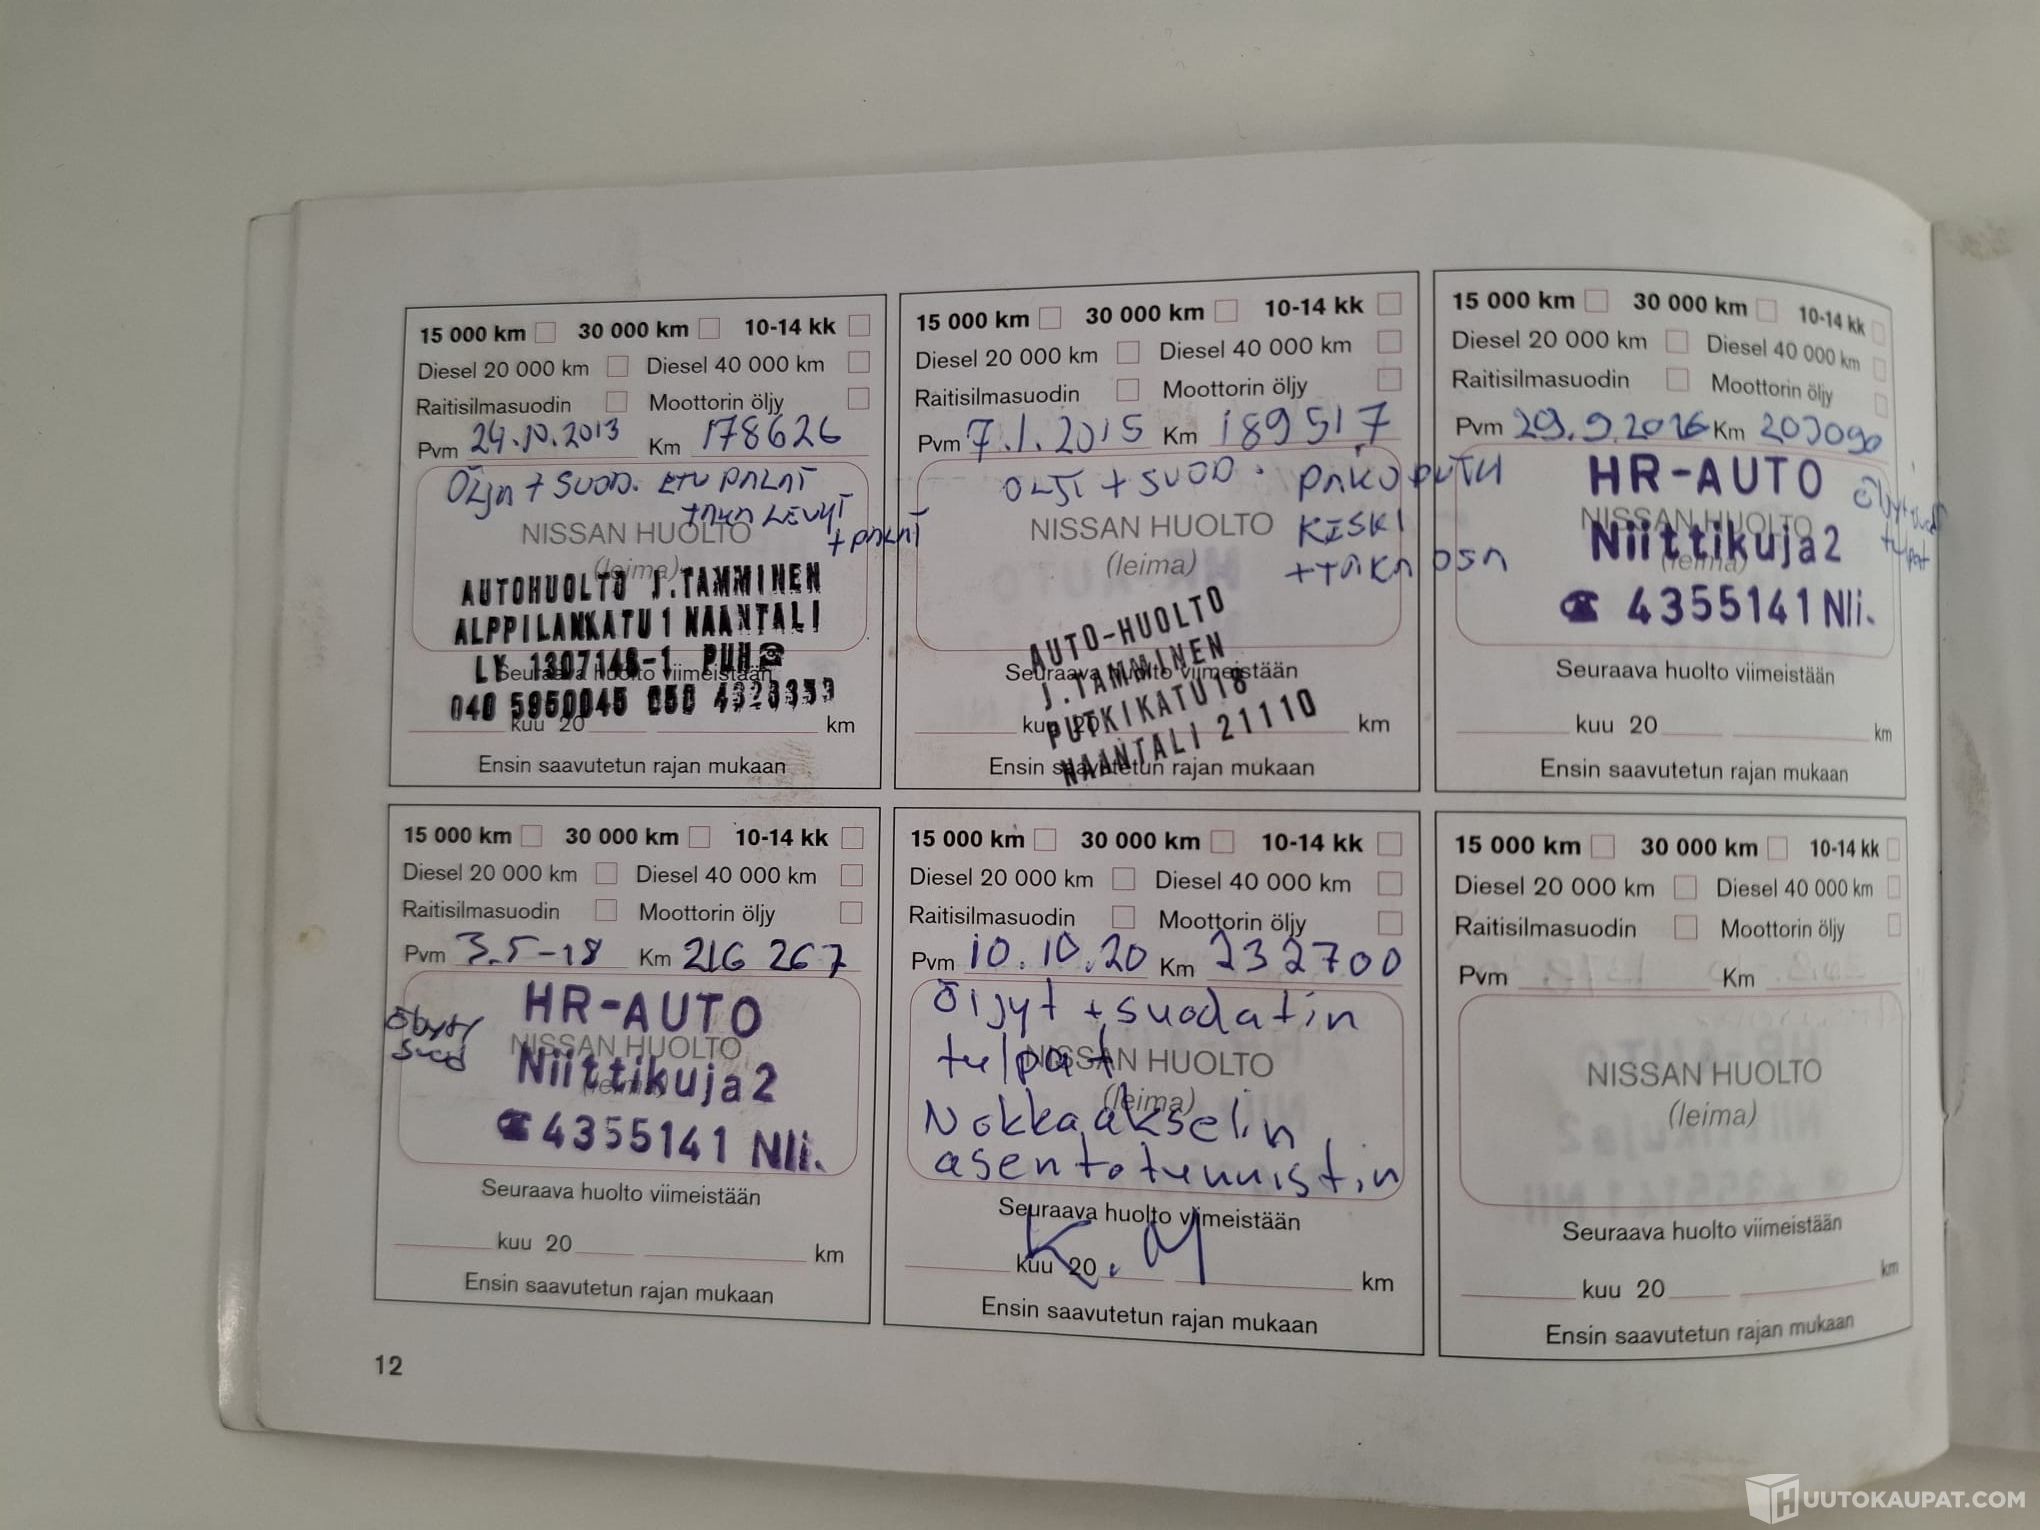 15 000 km 30 000 km 10-14 kk
Diesel 20 000 km Diesel 40 000 km
Raitisilmasuodin Moottorin öljy
Pvm 24.10.2013 Km 178626
ÖLJN + SUOD. ETU PALAT
+ LEVYT
NISSAN HUOLTO
+ PALAT
(leima)
AUTOHUOLTO J.TAMMINEN
ALPPILANKATU 1 NAANTALI
LY 1307148-1 PUH☎
Seuraava huolto viimeistään
040 5950045 050 4323333
kuu 20 km
Ensin saavutetun rajan mukaan
15 000 km 30 000 km 10-14 kk
Diesel 20 000 km Diesel 40 000 km
Raitisilmasuodin Moottorin öljy
Pvm 7.1.2015 Km 189517
ÖLJT + SUOD. PAKOPUTKI
NISSAN HUOLTO KESKI
(leima) + TAKA OSA
AUTO-HUOLTO
J.TAMMINEN
Seuraava huolto viimeistään
PUTKIKATU 18
kuu 20 km
NAANTALI 21110
Ensin saavutetun rajan mukaan
15 000 km 30 000 km 10-14 kk
Diesel 20 000 km Diesel 40 000 km
Raitisilmasuodin Moottorin öljy
Pvm 29.9.2016 Km 203090
HR-AUTO
NISSAN HUOLTO
Niittikuja 2 tulpat
(leima)
☎ 4355141 Nli.
Seuraava huolto viimeistään
kuu 20 km
Ensin saavutetun rajan mukaan
15 000 km 30 000 km 10-14 kk
Diesel 20 000 km Diesel 40 000 km
Raitisilmasuodin Moottorin öljy
Pvm 3.5-18 Km 216 267
HR-AUTO
suod NISSAN HUOLTO
Niittikuja 2
(leima)
☎ 4355141 Nli.
Seuraava huolto viimeistään
kuu 20 km
Ensin saavutetun rajan mukaan
15 000 km 30 000 km 10-14 kk
Diesel 20 000 km Diesel 40 000 km
Raitisilmasuodin Moottorin öljy
Pvm 10.10.20 Km 232700
Öljyt + suodatin
tulpat
NISSAN HUOLTO
(leima)
Nokka akselin
asentotunnistin
Seuraava huolto viimeistään
K.M
kuu 20 km
Ensin saavutetun rajan mukaan
15 000 km 30 000 km 10-14 kk
Diesel 20 000 km Diesel 40 000 km
Raitisilmasuodin Moottorin öljy
Pvm Km
NISSAN HUOLTO
(leima)
Seuraava huolto viimeistään
kuu 20 km
Ensin saavutetun rajan mukaan
12
HUUTOKAUPAT.COM